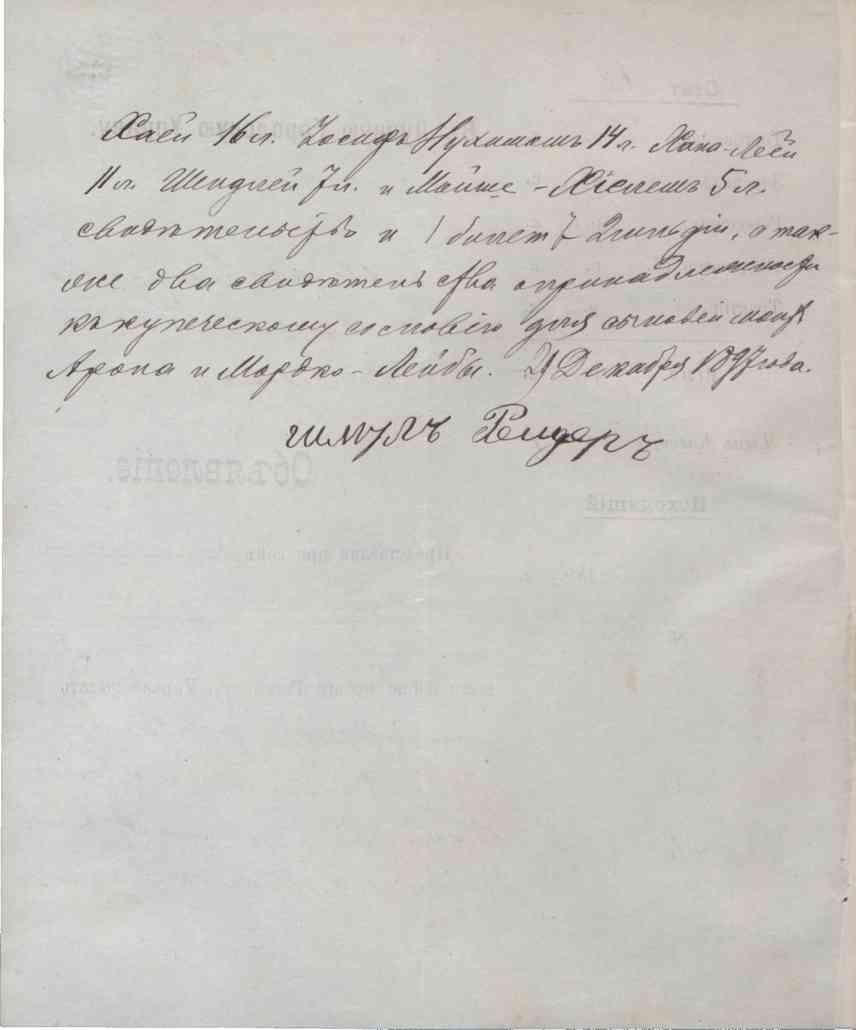 Хаей 16 л. Іосифъ Нухимомъ 14 л. Хана-Лея
11 л. Шендлей 7 л. и Мойше-Хіелемъ 5 л.
свидѣтельство и 1 билетъ 2 гильдіи, а так-
же два свидѣтельства о принадлежности
къ купеческому сословію для сыновей моихъ
Арона и Мордко-Лейбы. Декабря 1897 года.
Шмуль
Объявленіе.
Исходящій